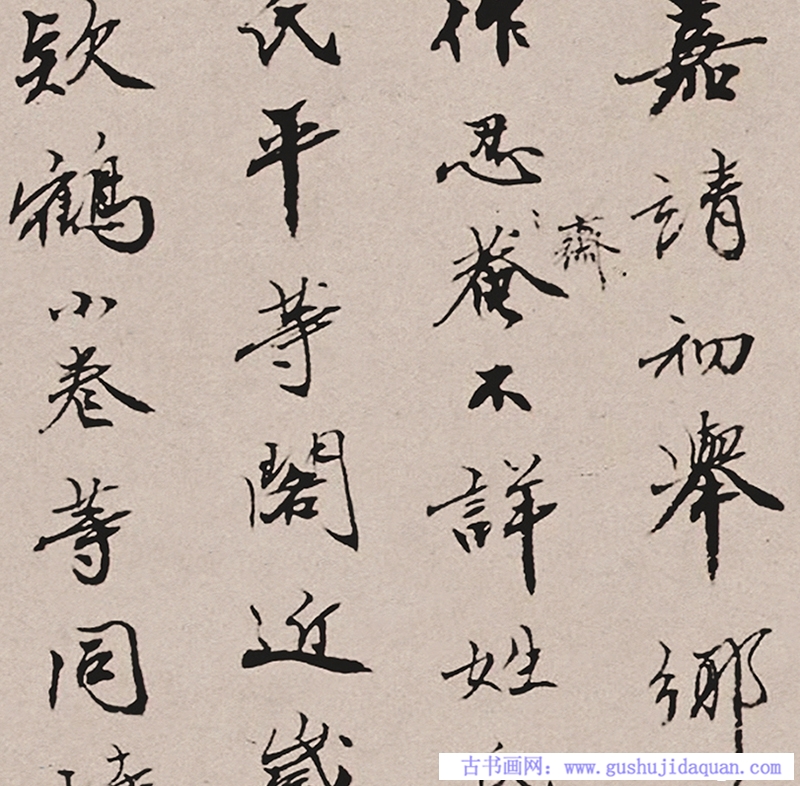 嘉靖初舉鄉
作忍菴不詳姓
齋
氏平等閣近歲
欵鶴小卷等同
古书画网：www.gushujidaquan.com